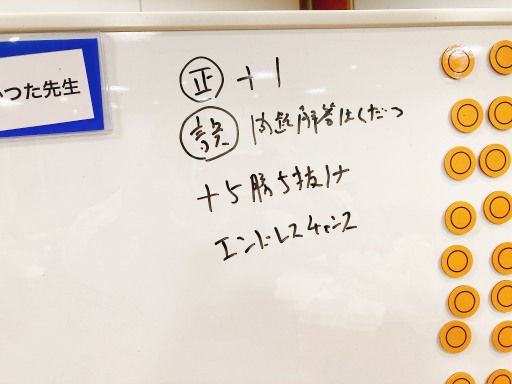 つた先生
正 +1
誤 問題解答はくだつ
+5勝ち抜け
エンドレスチャンス